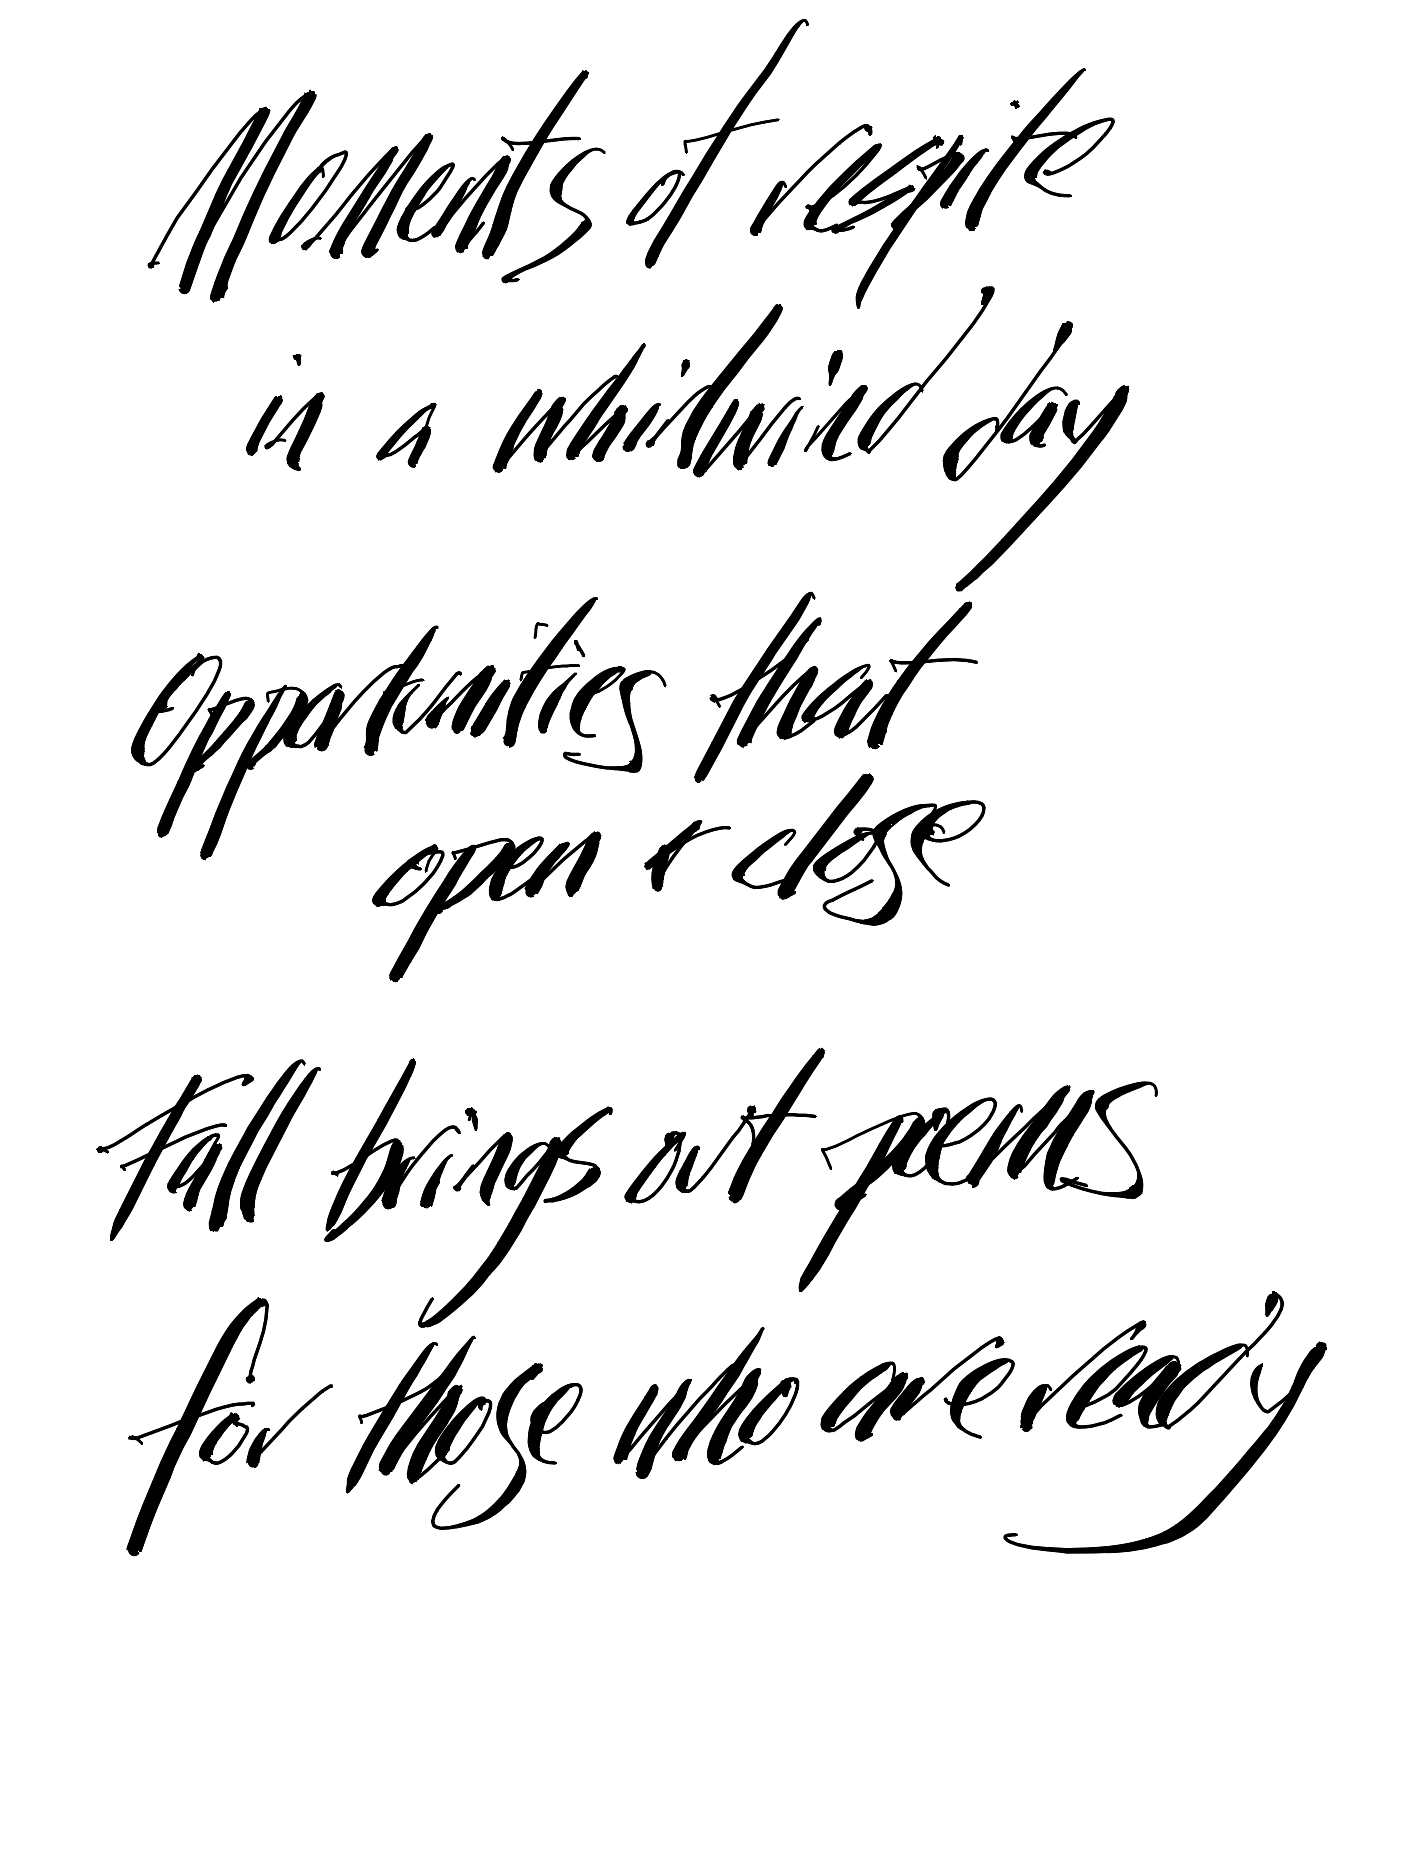 Moments of respite
in a whirlwind day
Opportunities that
open & close
Fall brings out poems
for those who are ready